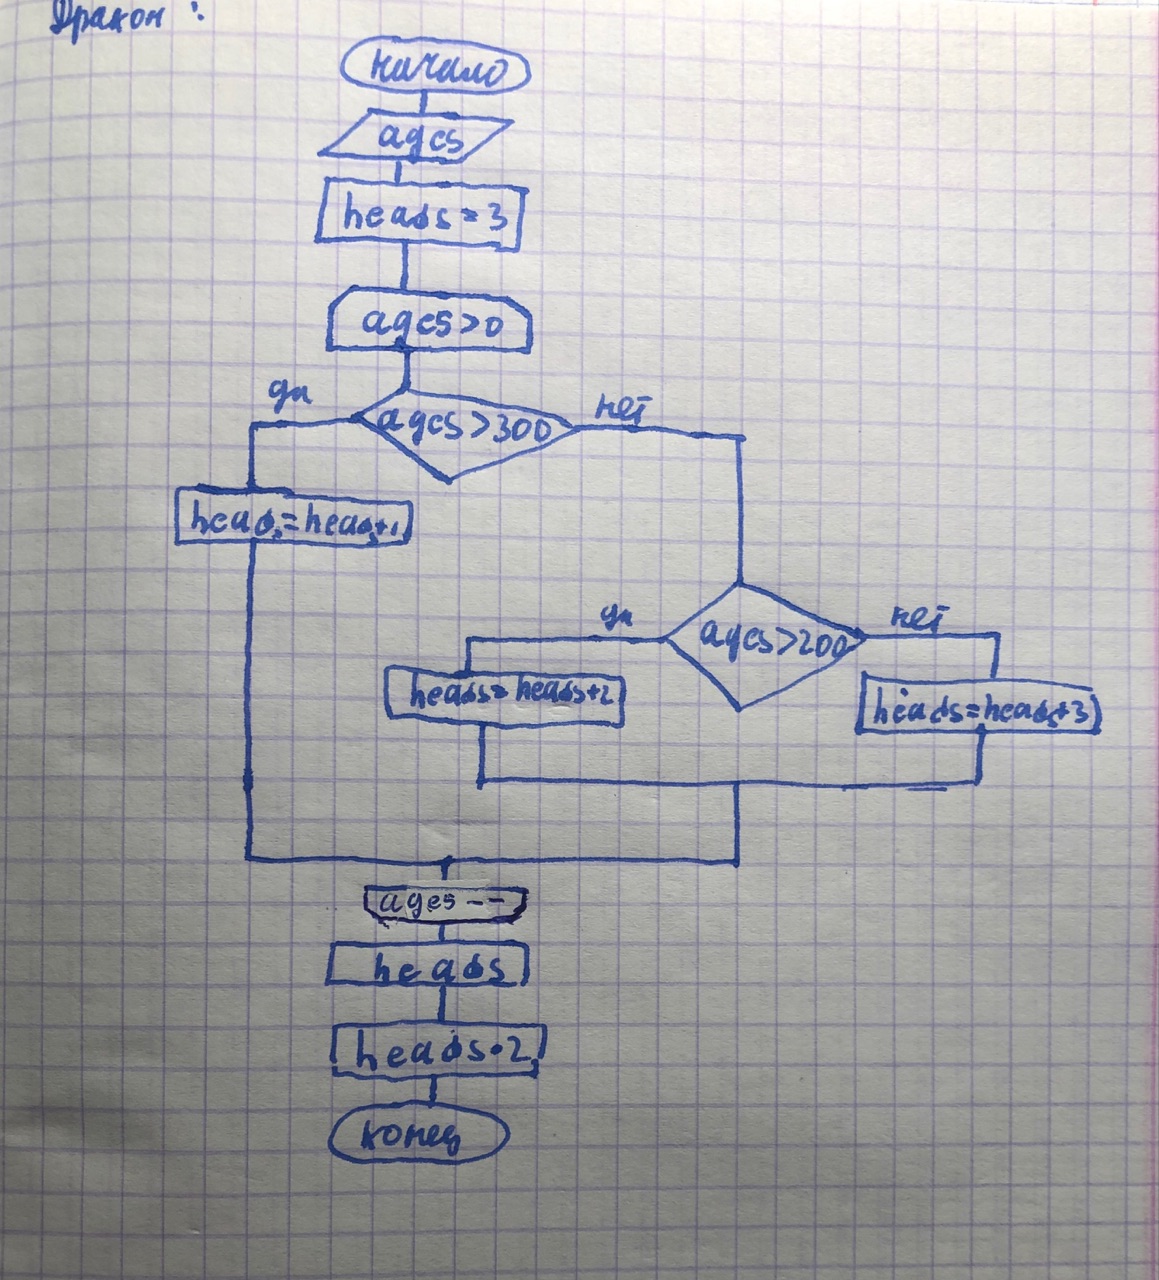 Дракон:
начало
ages
heads = 3
ages > 0
да
ages > 300
нет
heads = heads+1
да
ages > 200
нет
heads = heads+2
heads = heads+3
ages --
heads
heads · 2
конец